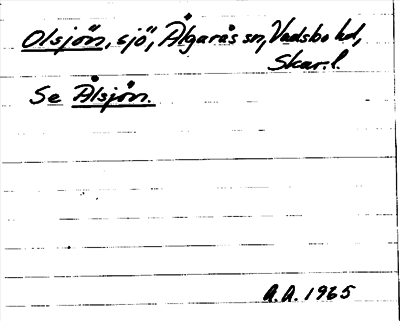 Olsjön, sjö, Älgarås sn, Vadsbo hd,
Skar. l.
Se Ålsjön.
A.A. 1965